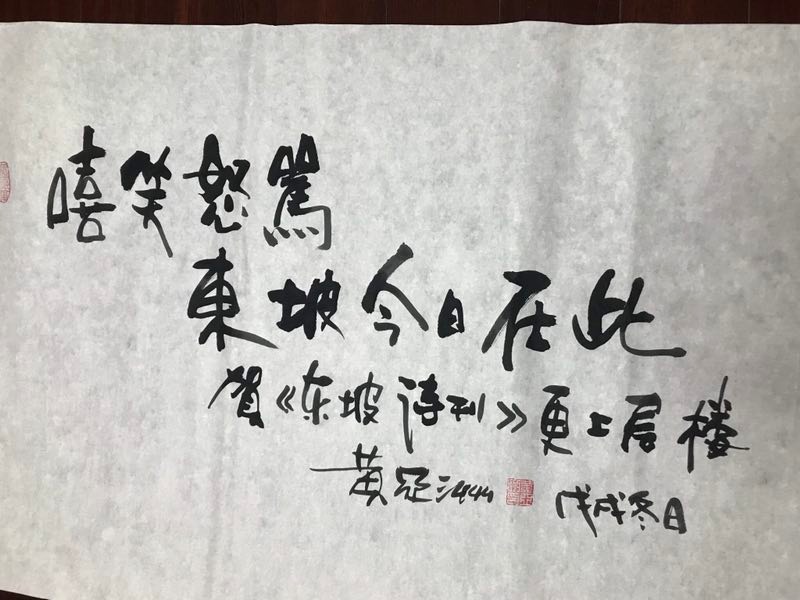 嘻笑怒罵
東坡今日在此
賀《东坡诗刊》更上层楼
黄冠三444
戊戌冬日